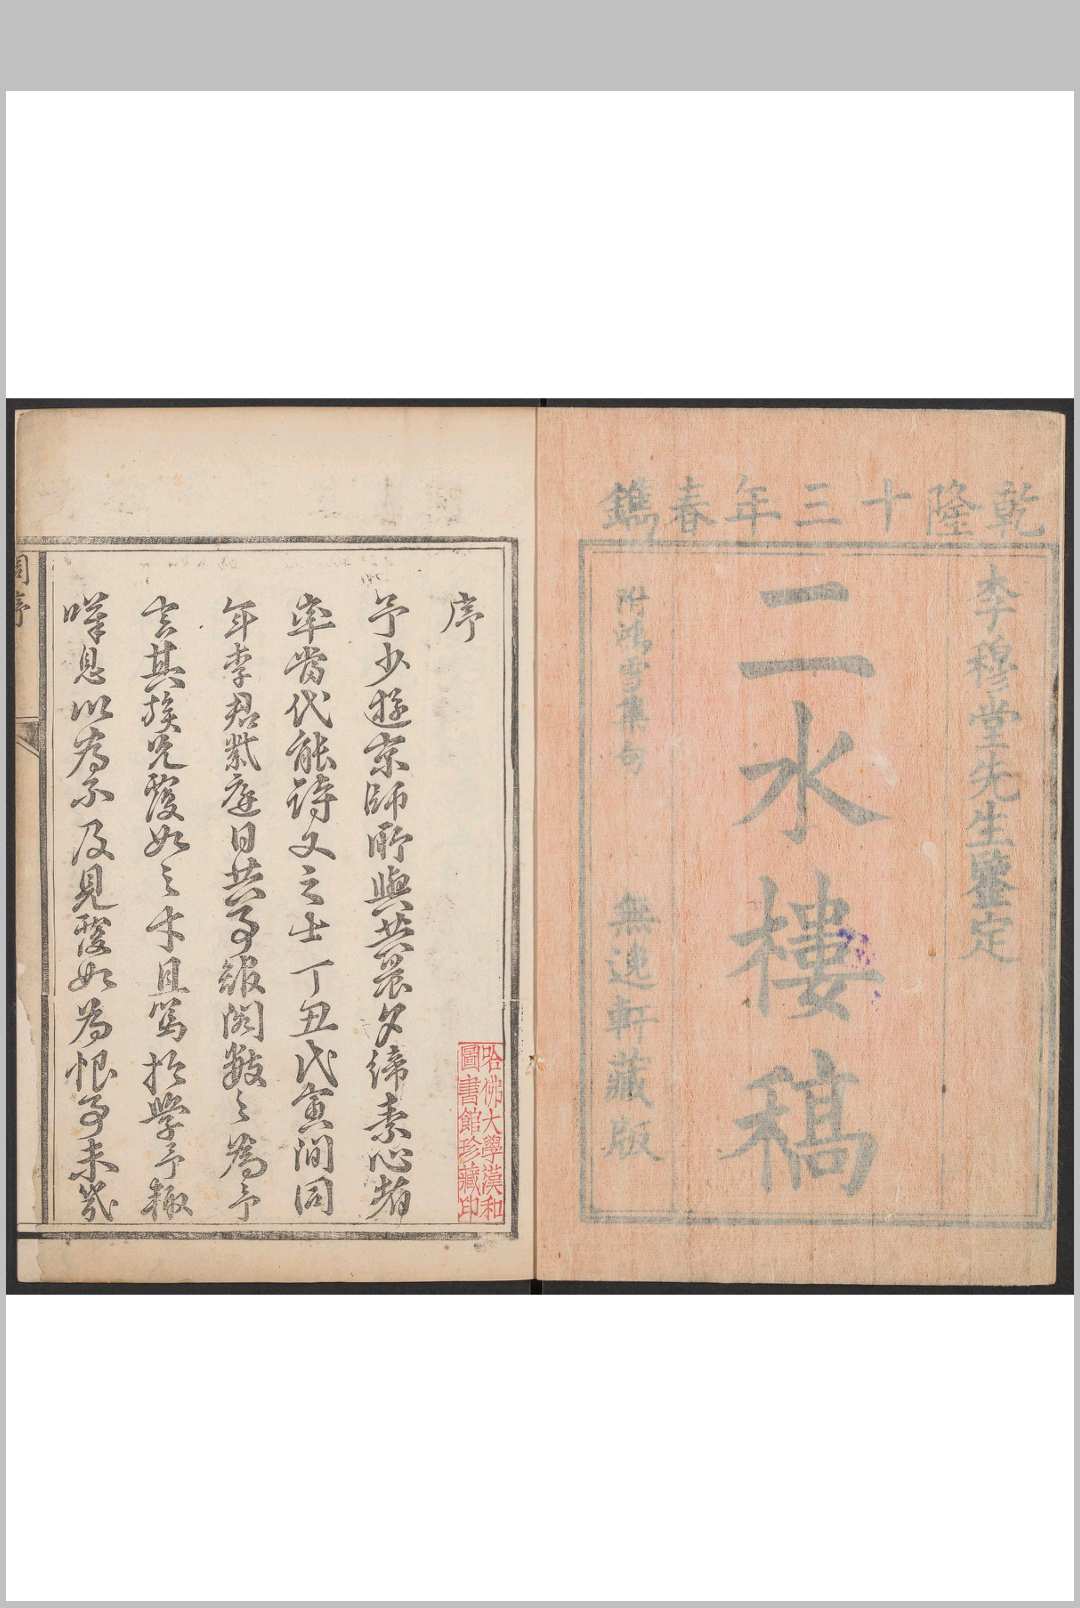 乾隆十三年春鐫
李穆堂先生鑒定
二水樓稿
附鴻雪集句
無逸軒藏版
序
予少遊京師所與共晨夕締素心者
率當代能詩文之士丁丑戊寅間同
年李君紫庭日共事綸閣數數為予
言其族兄覆如之才且篤於學予輒
嘆息以為不及見覆如為恨事未幾
哈佛大學漢和
圖書館珍藏印
周序